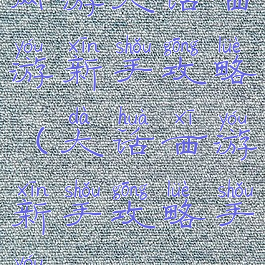 yóu xīn shǒu gōng lüè
游新手攻略
dà huà xī yóu
(大话西游
xīn shǒu gōng lüè shǒu
新手攻略手
yóu